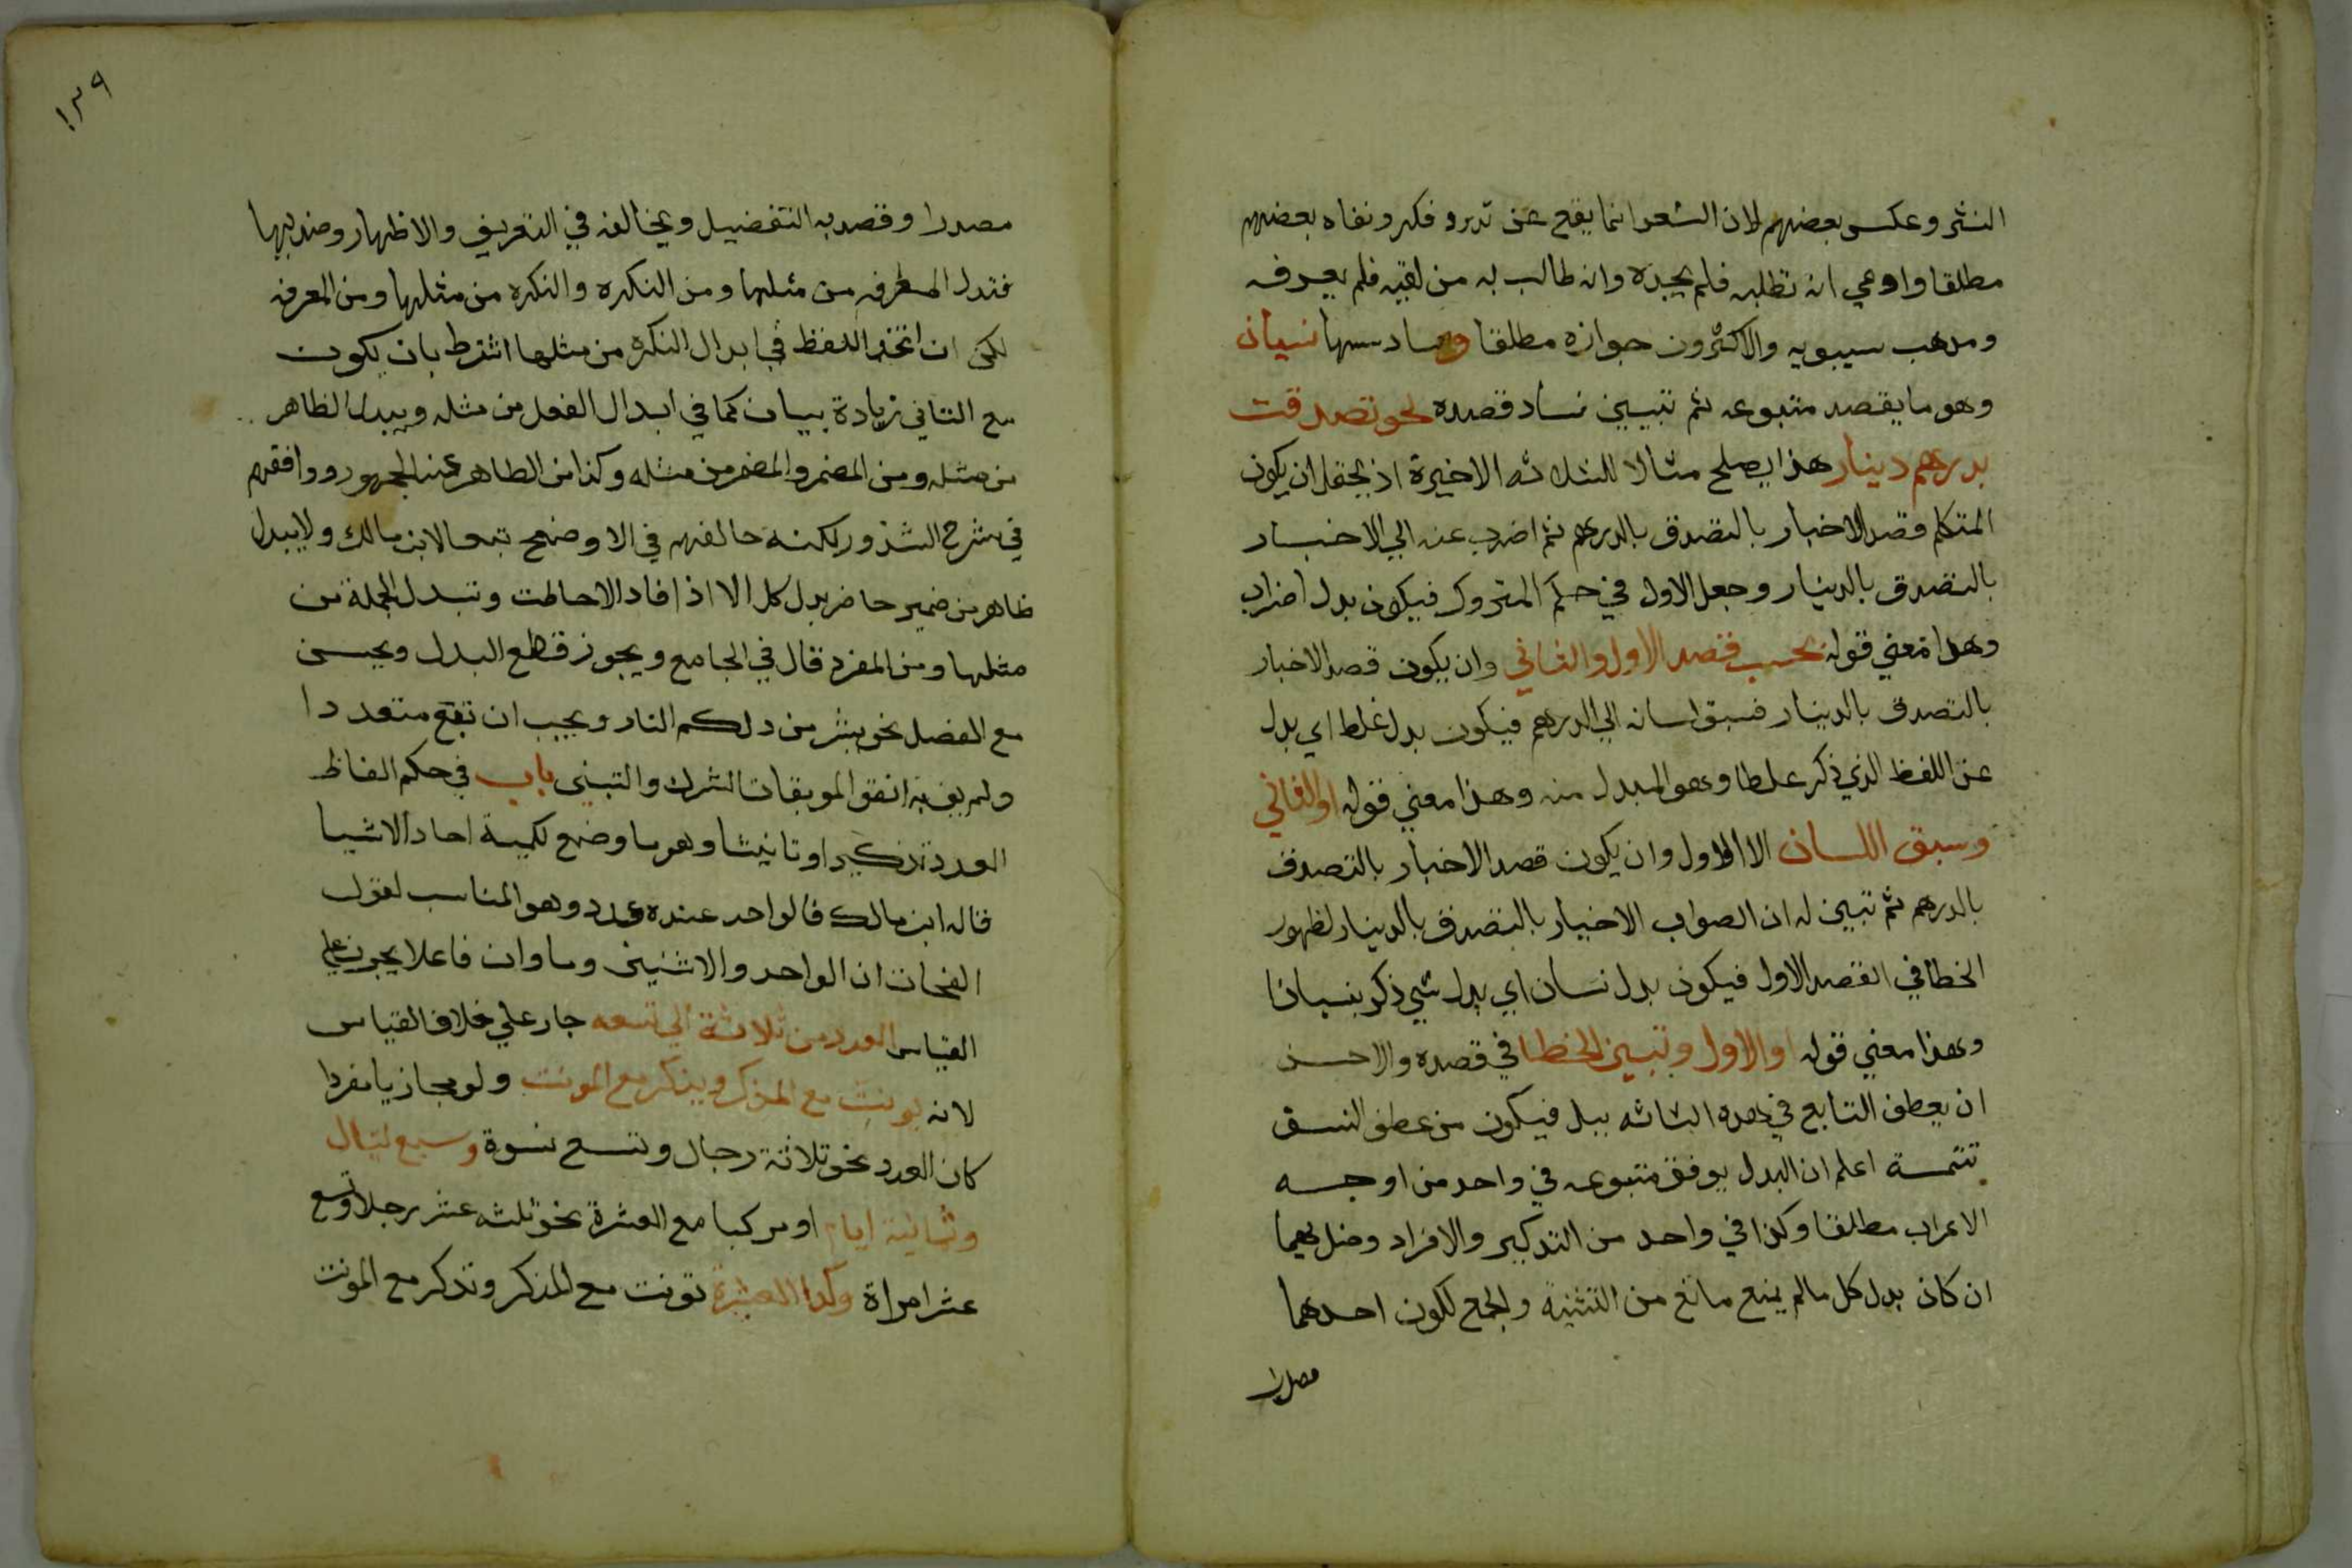 النثر وعكس بعضهم لان الشعر انما يقع عن تردد وفكر ونفاه بعضهم
مطلقا وادعي انه تطلبه فلم يجده وانه طالب به من لقيه فلم يعرفه
ومدهب سيبويه والاكثرون جوازه مطلقا وسادسها نسيان
وهو ما يقصد متبوعه ثم تبيين فساد قصده نحو تصدقت
بدرهم دينار هذا يصلح مثالا للثلاثه الاخيرة اذ يحتمل ان يكون
المتكلم قصد الاخبار بالتصدق بالدرهم ثم اضرب عنه الي الاخبار
بالتصدق بالدينار وجعل الاول في حكم المتروك فيكون بدل اضراب
وهدا معني قوله بحسب قصد الاول والثاني وان يكون قصد الاخبار
بالتصدق بالدينار فسبق لسانه الي الدرهم فيكون بدل غلط اي بدل
عن اللفظ الذي ذكر غلطا وهو المبدل منه وهذا معني قوله او الثاني
وسبق اللسان الا الاول وان يكون قصد الاخبار بالتصدق
بالدرهم ثم تبين له ان الصواب الاخبار بالتصدق بالدينار لظهور
الخطا في القصد الاول فيكون بدل نسيان اي بدل شي ذكر نسيانا
وهذا معني قوله او الاول وتبين الخطا في قصده والاحسن
ان يعطف التابع في هده الثلثه ببل فيكون من عطف النسق
تتمة اعلم ان البدل يوفق متبوعه في واحد من اوجه
الاعراب مطلقا وكذا في واحد من التدكير والافراد وضديهما
ان كان بدل كل مالم يمنع مانع من التثنية والجمع لكون احدهما
مصدرا
١٣٩
مصدرا او قصد به التفضيل ويخالفه في التعريف والاظهار وضديها
فتبدل المعرفه من مثلها ومن النكره والنكره من مثلها ومن المعرفه
لكن ان اتحد اللفظ في ابدال النكره من مثلها اشترط بان يكون
مع الثاني زيادة بيان كما في ابدال الفعل من مثله ويبدل الظاهر
من مثله ومن المضمر والمضمر من مثله وكذا من الظاهر عند الجمهور ووافقهم
في شرح الشذور لكنه خالفهم في الاوضح تبعا لابن مالك ولا يبدل
ظاهر من ضمير حاضر بدل كل الا اذا افاد الاحاطت وتبدل الجملة من
مثلها ومن المفرد قال في الجامع ويجوز قطع البدل ويحسن
مع الفصل نحو بشر من ذلكم النار ويجب ان تقع متعددا
ولم يف به اتقوا الموبقات الشرك والتبني باب في حكم الفاظ
العدد تذكيرا وتانيثا وهو ما وضع لكمية احاد الاشيا
قاله ابن مالك فالواحد عنده عدد وهو المناسب لقول
النحات ان الواحد والاثنين وما وان فاعلا يجرين علي
القياس العدد من ثلاثة الي تسعه جار علي خلاف القياس
لانه يونث مع المذكر ويذكر مع المونث ولو مجازيا مفردا
كان العدد نحو ثلاثة رجال وتسع نسوة وسبع ليال
وثمانية ايام او مركبا مع العشرة نحو ثلثه عشر رجلا وتسع
عشر امراة وكدا العشرة تونث مع المذكر وتذكر مع المونث